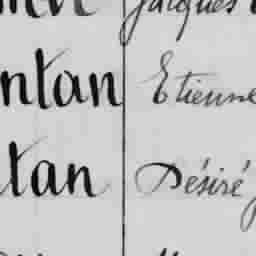 Jacques
ntan Etienne
tan Désiré